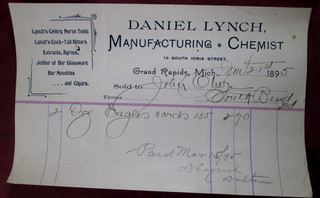 Lynch's Celery Nerve Tonic.
Lynch's Cock-Tail Bitters
Extracts, Syrups,
Jobber of Bar Glassware
Bar Novelties
and Cigars.
DANIEL LYNCH,
MANUFACTURING CHEMIST
19 SOUTH IONIA STREET.
Grand Rapids, Mich., 21st 1895
Sold to John
South Bend
Terms
2 Dz Eagles 135 2 70
Paid Mar 15/95